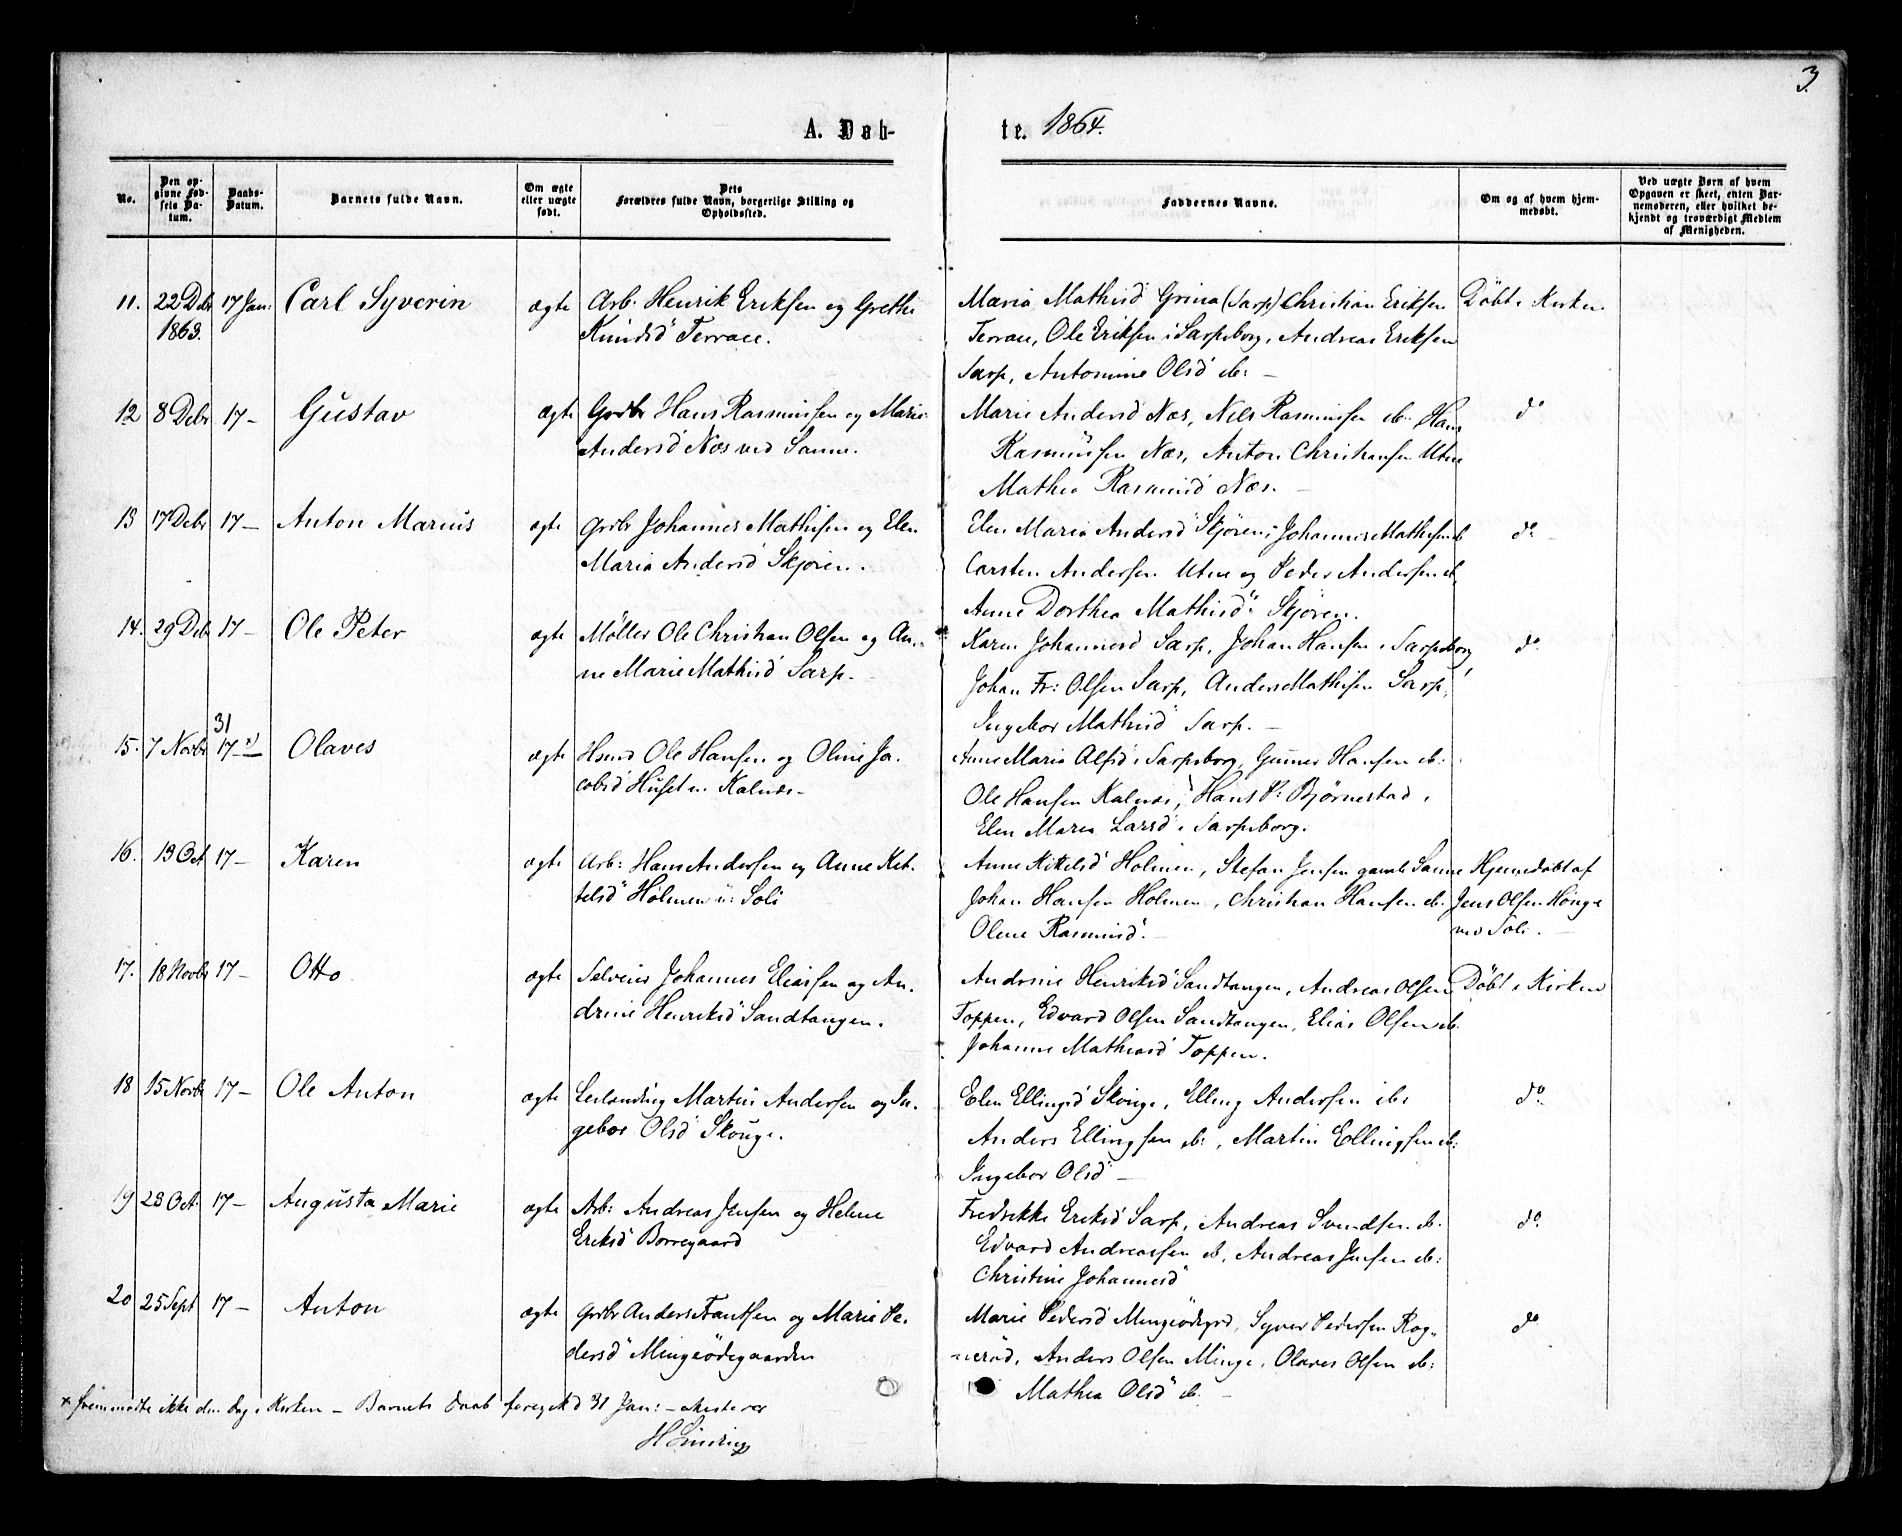 3
A. Døb-
te. 1864.
No.
Den op-
givne Fød-
sels Da-
tum.
Daabs-
Datum.
Barnets fulde Navn.
Om ægte
eller uægte
født.
Dets
Forældres fulde Navn, borgerlige Stilling og
Opholdssted.
Faddernes Navne.
Om og af hvem hjem-
medøbt.
Ved uægte Børn af hvem
Opgaven er skeet, enten Bar-
nemoderen, eller hvilket be-
kjendt og troværdigt Medlem
af Menigheden.
11. 22 Debr 17 Jan: Carl Syverin ægte Arb: Henrik Eriksen og Grethe Maria Mathisd Grina (Sarp) Christian Eriksen Döbt i Kirken
1863. Knudsd Terrace. Terrace, Ole Eriksen i Sarpsborg, Andreas Eriksen
Sarp, Antomine Olsd ib: —
12 8 Debr 17 — Gustav ægte Grdbr Hans Rasmussen og Marie Marie Andersd Næs, Nils Rasmussen ib. Hans do
Andersd Næs ved Sanne. Rasmussen Næs, Anton Christiansen Utne
Mathea Rasmusd Næs. —
13 17 Debr 17 — Anton Marius ægte Grdbr Johannes Mathisen og Elen Elen Maria Andersd Skjören, Johannes Mathisen ib do
Maria Andersd Skjören. Carsten Andersen Utne og Peder Andersen ib
Anne Dorthea Mathisd Skjören.
14. 29 Debr 17 — Ole Peter ægte Møller Ole Christian Olsen og An- Karen Johannesd Sarp, Johan Hansen i Sarpsborg, do
ne Marie Mathisd Sarp. Johan Fr: Olsen Sarp, Anders Mathisen Sarp,
Ingebor Mathisd Sarp. —
31
15. 7 Novbr 17 x) Olaves ægte Hsmd Ole Hansen og Oline Ja- Anne Maria Alfsd i Sarpsborg, Gunner Hansen ib:
cobsd Huset u. Kalnæs. Ole Hansen Kalnæs, Hans P. Björnestad,
Elen Maria Larsd i Sarpsborg.
16. 13 Oct 17 — Karen ægte Arb: Hans Andersen og Anne Ket- Anne Kittelsd Holmen, Stefan Jensen gamle Sanne Hjemmedöbt af
telsd Holmen u: Soli Johan Hansen Holmen, Christian Hansen ib. Jens Olsen
Oline Rasmusd. — ved Soli. —
17. 18 Novbr 17 — Otto ægte Selveier Johannes Eliassen og An- Andrine Henriksd Sandtangen, Andreas Olsen Döbt i Kirken
drine Henriksd Sandtangen. Toppen, Edvard Olsen Sandtangen, Elias Olsen ib.
Johanne Mathiasd Toppen.
18 15 Novbr 17 — Ole Anton ægte Leilending Martin Andersen og In- Elen Ellingsd Skouge, Elling Andersen ib: do
gebor Olsd Skouge. Anders Ellingsen ib:, Martin Ellingsen ib:
Ingebor Olsd —
19 23 Oct. 17 — Augusta Marie ægte Arb: Andreas Jensen og Helene Fredrikke Eriksd Sarp, Andreas Svendsen ib. do
Eriksd Borregaard Edvard Andreassen ib, Andreas Jensen ib:
Christine Johannesd
20 25 Sept 17 — Anton ægte Grdbr Anders Frantsen og Marie Pe- Marie Pedersd Mingeödegrd, Syver Pedersen Rog- do
dersd Mingeödegaarden neröd, Anders Olsen Minge, Olaves Olsen ib:
Mathea Olsd ib. —
x fremmödte ikke den dag i Kirken — Barnets Daab foregik d 31 Jan: —